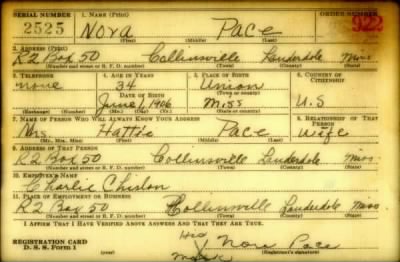 SERIAL NUMBER 1. NAME (Print) ORDER NUMBER
2525 Nora Pace 922
(First) (Middle) (Last)
2. ADDRESS (Print)
R2 Box 50 Collinsville Lauderdale Miss
(Number and street or R. F. D. number) (Town) (County) (State)
3. TELEPHONE 4. AGE IN YEARS 5. PLACE OF BIRTH 6. COUNTRY OF CITIZENSHIP
none 34 Union
DATE OF BIRTH (Town or county)
June 1, 1906 Miss U.S
(Exchange) (Number) (Mo.) (Day) (Yr.) (State or country)
7. NAME OF PERSON WHO WILL ALWAYS KNOW YOUR ADDRESS 8. RELATIONSHIP OF THAT PERSON
Mrs Hattie Pace Wife
(Mr., Mrs., Miss) (First) (Middle) (Last)
9. ADDRESS OF THAT PERSON
R2 Box 50 Collinsville Lauderdale Miss.
(Number and street or R. F. D. number) (Town) (County) (State)
10. EMPLOYER'S NAME
Charlie
11. PLACE OF EMPLOYMENT OR BUSINESS
R2 Box 50 Collinsville Lauderdale Miss
(Number and street or R. F. D. number) (Town) (County) (State)
I AFFIRM THAT I HAVE VERIFIED ABOVE ANSWERS AND THAT THEY ARE TRUE.
REGISTRATION CARD His
D. S. S. Form 1 X Nora Pace
Mark (Registrant's signature)